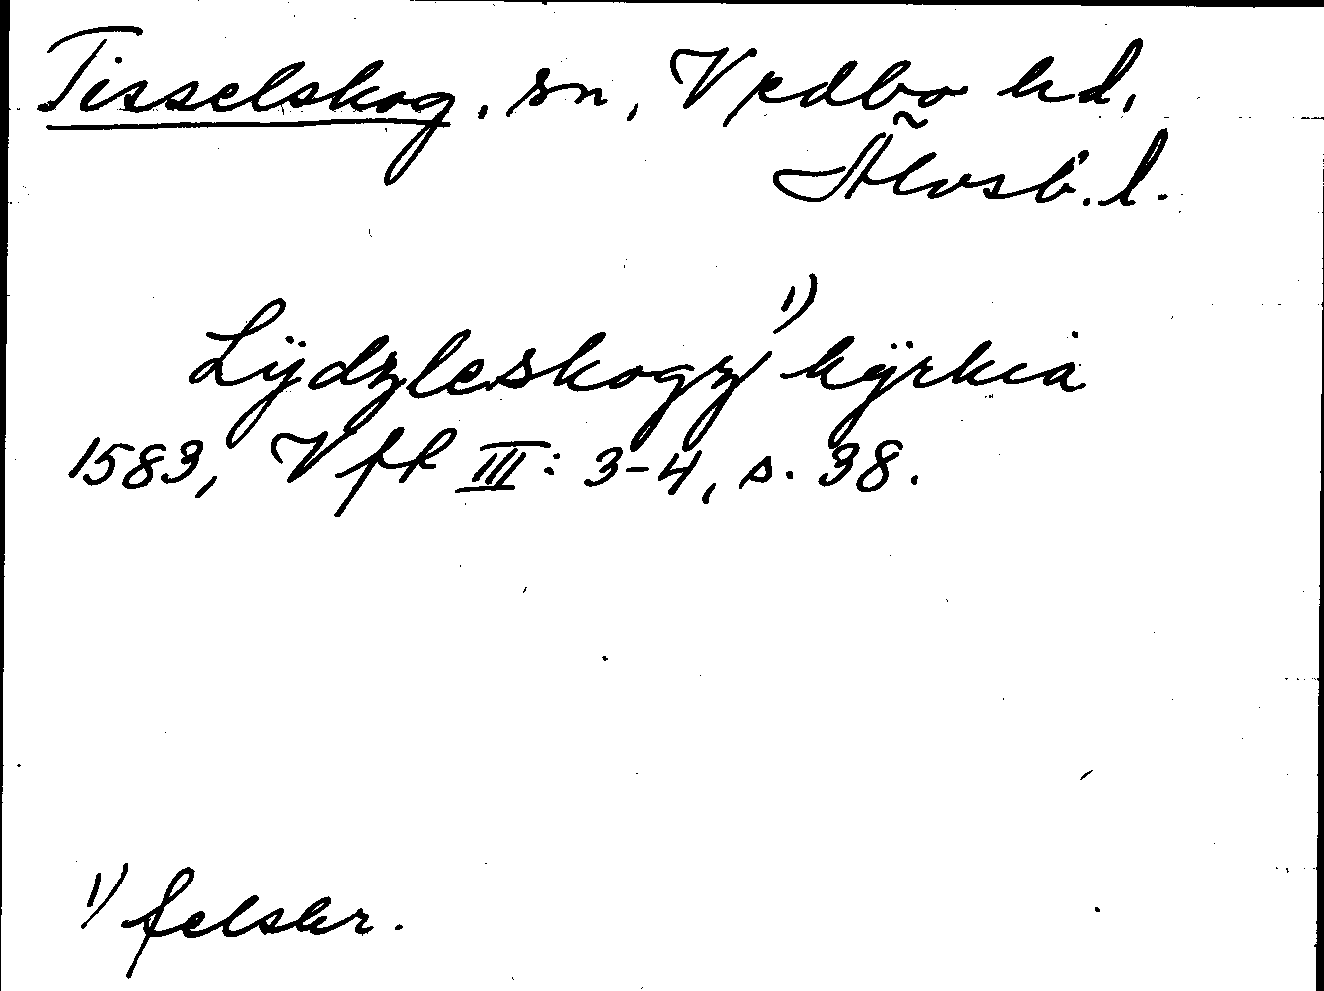 Tisselskog, sn, Vedbo hd,
Älvsb. l.
Lÿdzleskogz ¹⁾ kÿrkia
1583, Vft III: 3-4, s. 38.
¹⁾ felskr.